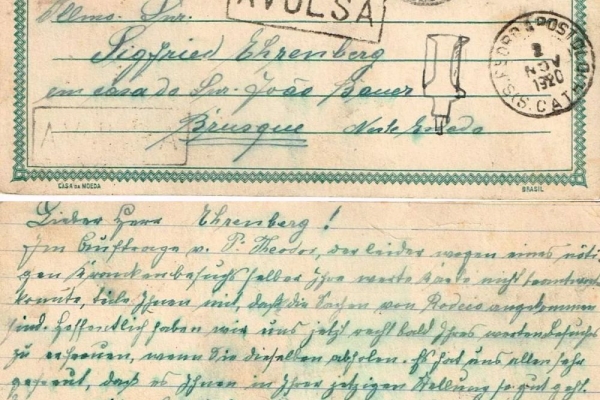 Illmo. Snr.
AVULSA
Sigfried Ehrenberg
em casa do Snr. João Bauer
Brusque Neste Estado
AVULSA
2
NOV
1920
S. CATH
CASA DA MOEDA
BRASIL
Lieber Herr Ehrenberg!
Im Auftrage v. P. Theodor, der leider wegen eines nöti-
gen Krankenbesuchs selber Ihre werte Karte nicht beantworten
konnte, teile Ihnen mit, daß die Sachen von Rodeio angekommen
sind. Hoffentlich haben wir uns jetzt recht bald Ihres werten Besuchs
zu erfreuen, wenn Sie dieselben abholen. Es hat uns allen sehr
gefreut, daß es Ihnen in Ihrer jetzigen Stellung so gut geht.